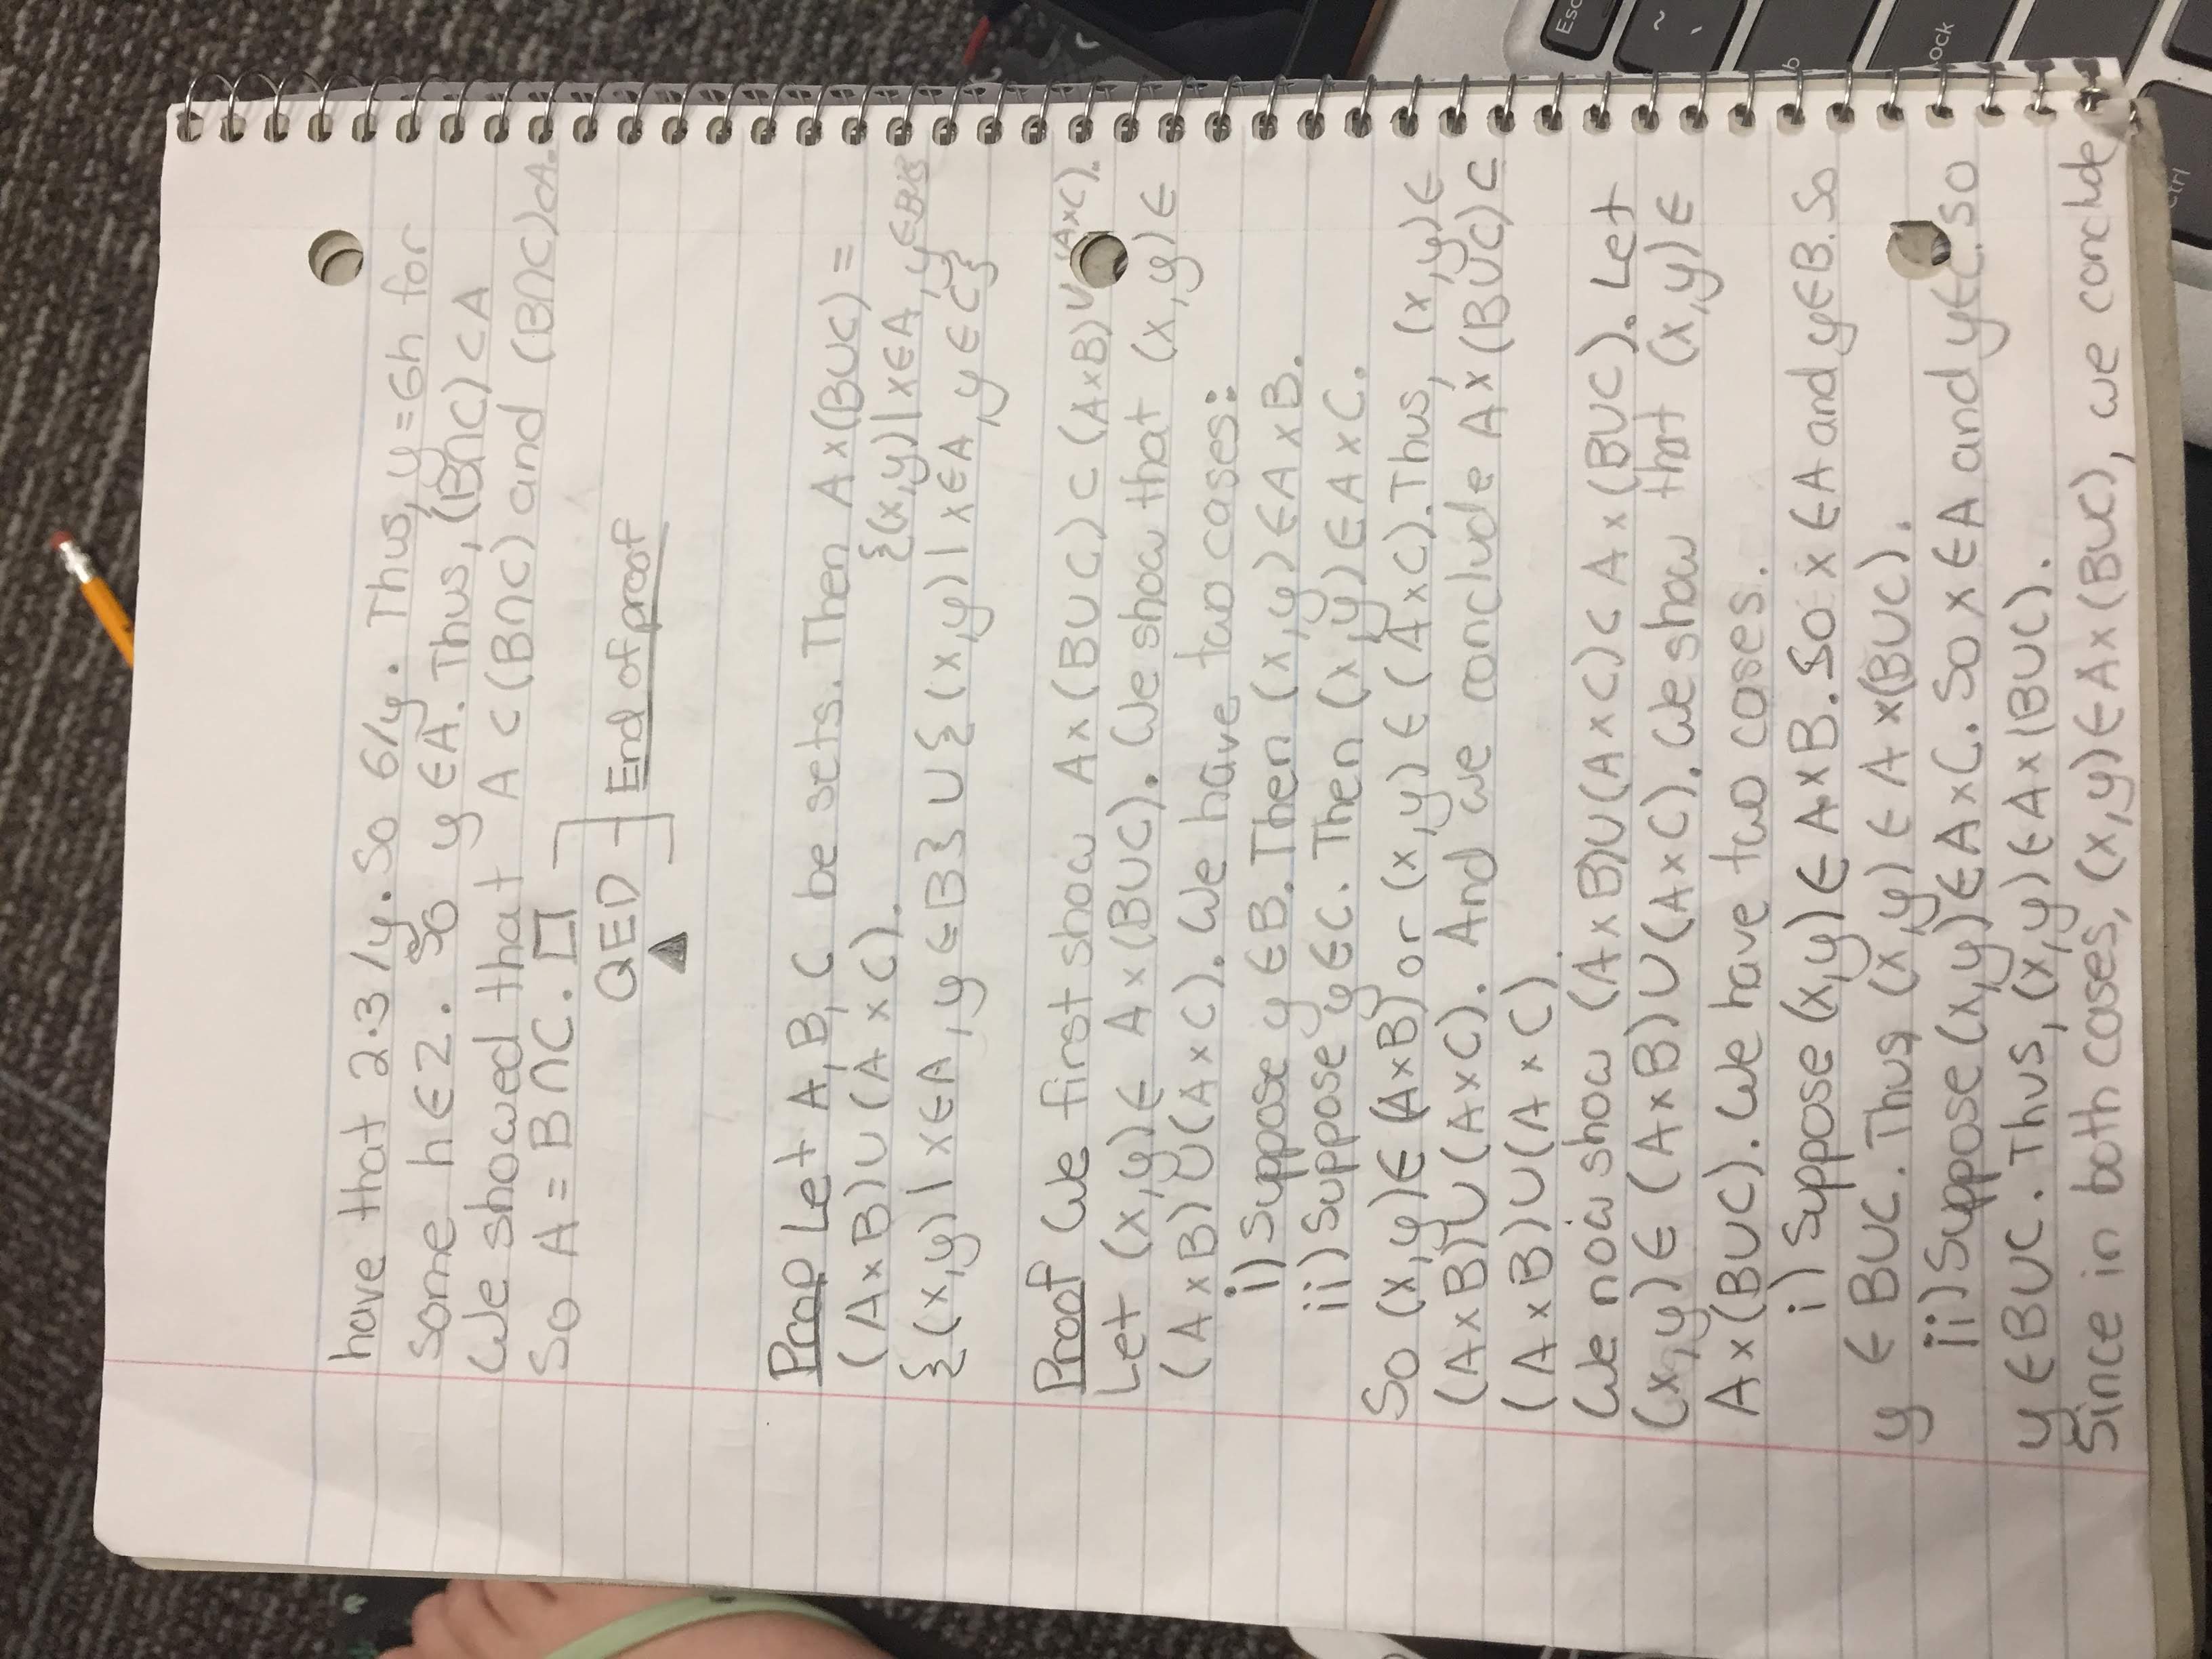 have that 2·3/y. So 6/y. Thus, y=6h for
some h∈Z. So y∈A. Thus, (B∩C)⊂A
We showed that A⊂(B∩C) and (B∩C)⊂A.
So A=B∩C. □
QED
End of proof
Prop Let A, B, C be sets. Then A×(B∪C)=
(A×B)∪(A×C).
{(x,y)|x∈A, y∈B∪C}
{(x,y)|x∈A, y∈B}∪{(x,y)|x∈A, y∈C}
Proof We first show A×(B∪C)⊂(A×B)∪(A×C).
Let (x,y)∈ A×(B∪C). We show that (x,y)∈
(A×B)∪(A×C). We have two cases:
i) Suppose y∈B. Then (x,y)∈A×B.
ii) Suppose y∈C. Then (x,y)∈A×C.
So (x,y)∈(A×B) or (x,y)∈(A×C). Thus, (x,y)∈
(A×B)∪(A×C). And we conclude A×(B∪C)⊂
(A×B)∪(A×C).
We now show (A×B)∪(A×C)⊂A×(B∪C). Let
(x,y)∈(A×B)∪(A×C). We show that (x,y)∈
A×(B∪C). We have two cases.
i) Suppose (x,y)∈A×B. So x∈A and y∈B. So
y∈B∪C. Thus, (x,y)∈A×(B∪C).
ii) Suppose (x,y)∈A×C. So x∈A and y∈C. So
y∈B∪C. Thus, (x,y)∈A×(B∪C).
Since in both cases, (x,y)∈A×(B∪C), we conclude
Esc
~
`
b
ock
Ctrl